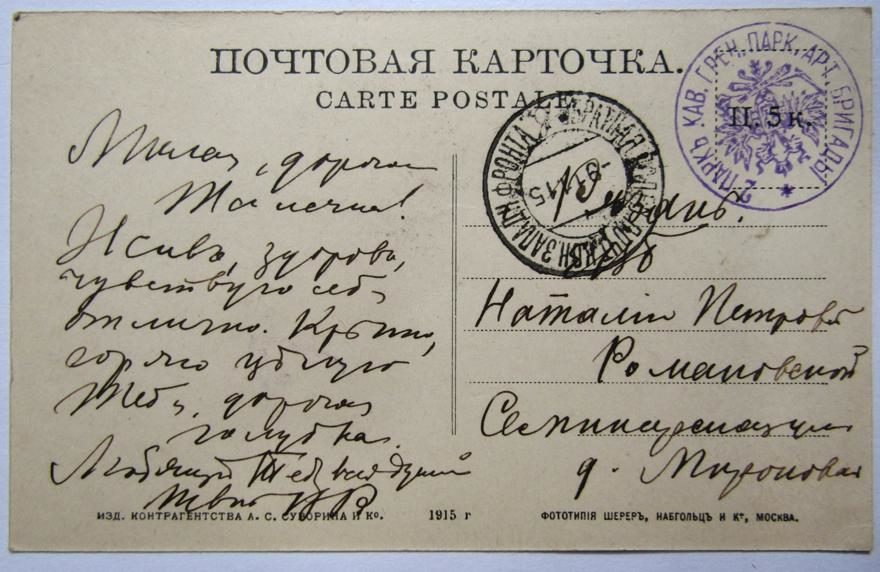 ПОЧТОВАЯ КАРТОЧКА.
CARTE POSTALE
2 ПАРКЪ КАВ. ГРЕН. ПАРК. АРТ. БРИГАДЫ
П. 5 к.
ФРОНТА
ЗАПАДН
15
Милая, дорогая
Талечка!
Я живъ, здоровъ,
чувствую себя
отлично. Крѣпко,
горячо цѣлую
Тебя, дорогая
голубка.
Любящій Тебя
Твой
Рязань.
Наталіи Петровнѣ
Романовской
Семинарская ул
д. Мироновой
ИЗД. КОНТРАГЕНТСТВА А. С. СУВОРИНА И Ко. 1915 г
ФОТОТИПІЯ ШЕРЕРЪ, НАБГОЛЬЦЪ И Ко, МОСКВА.